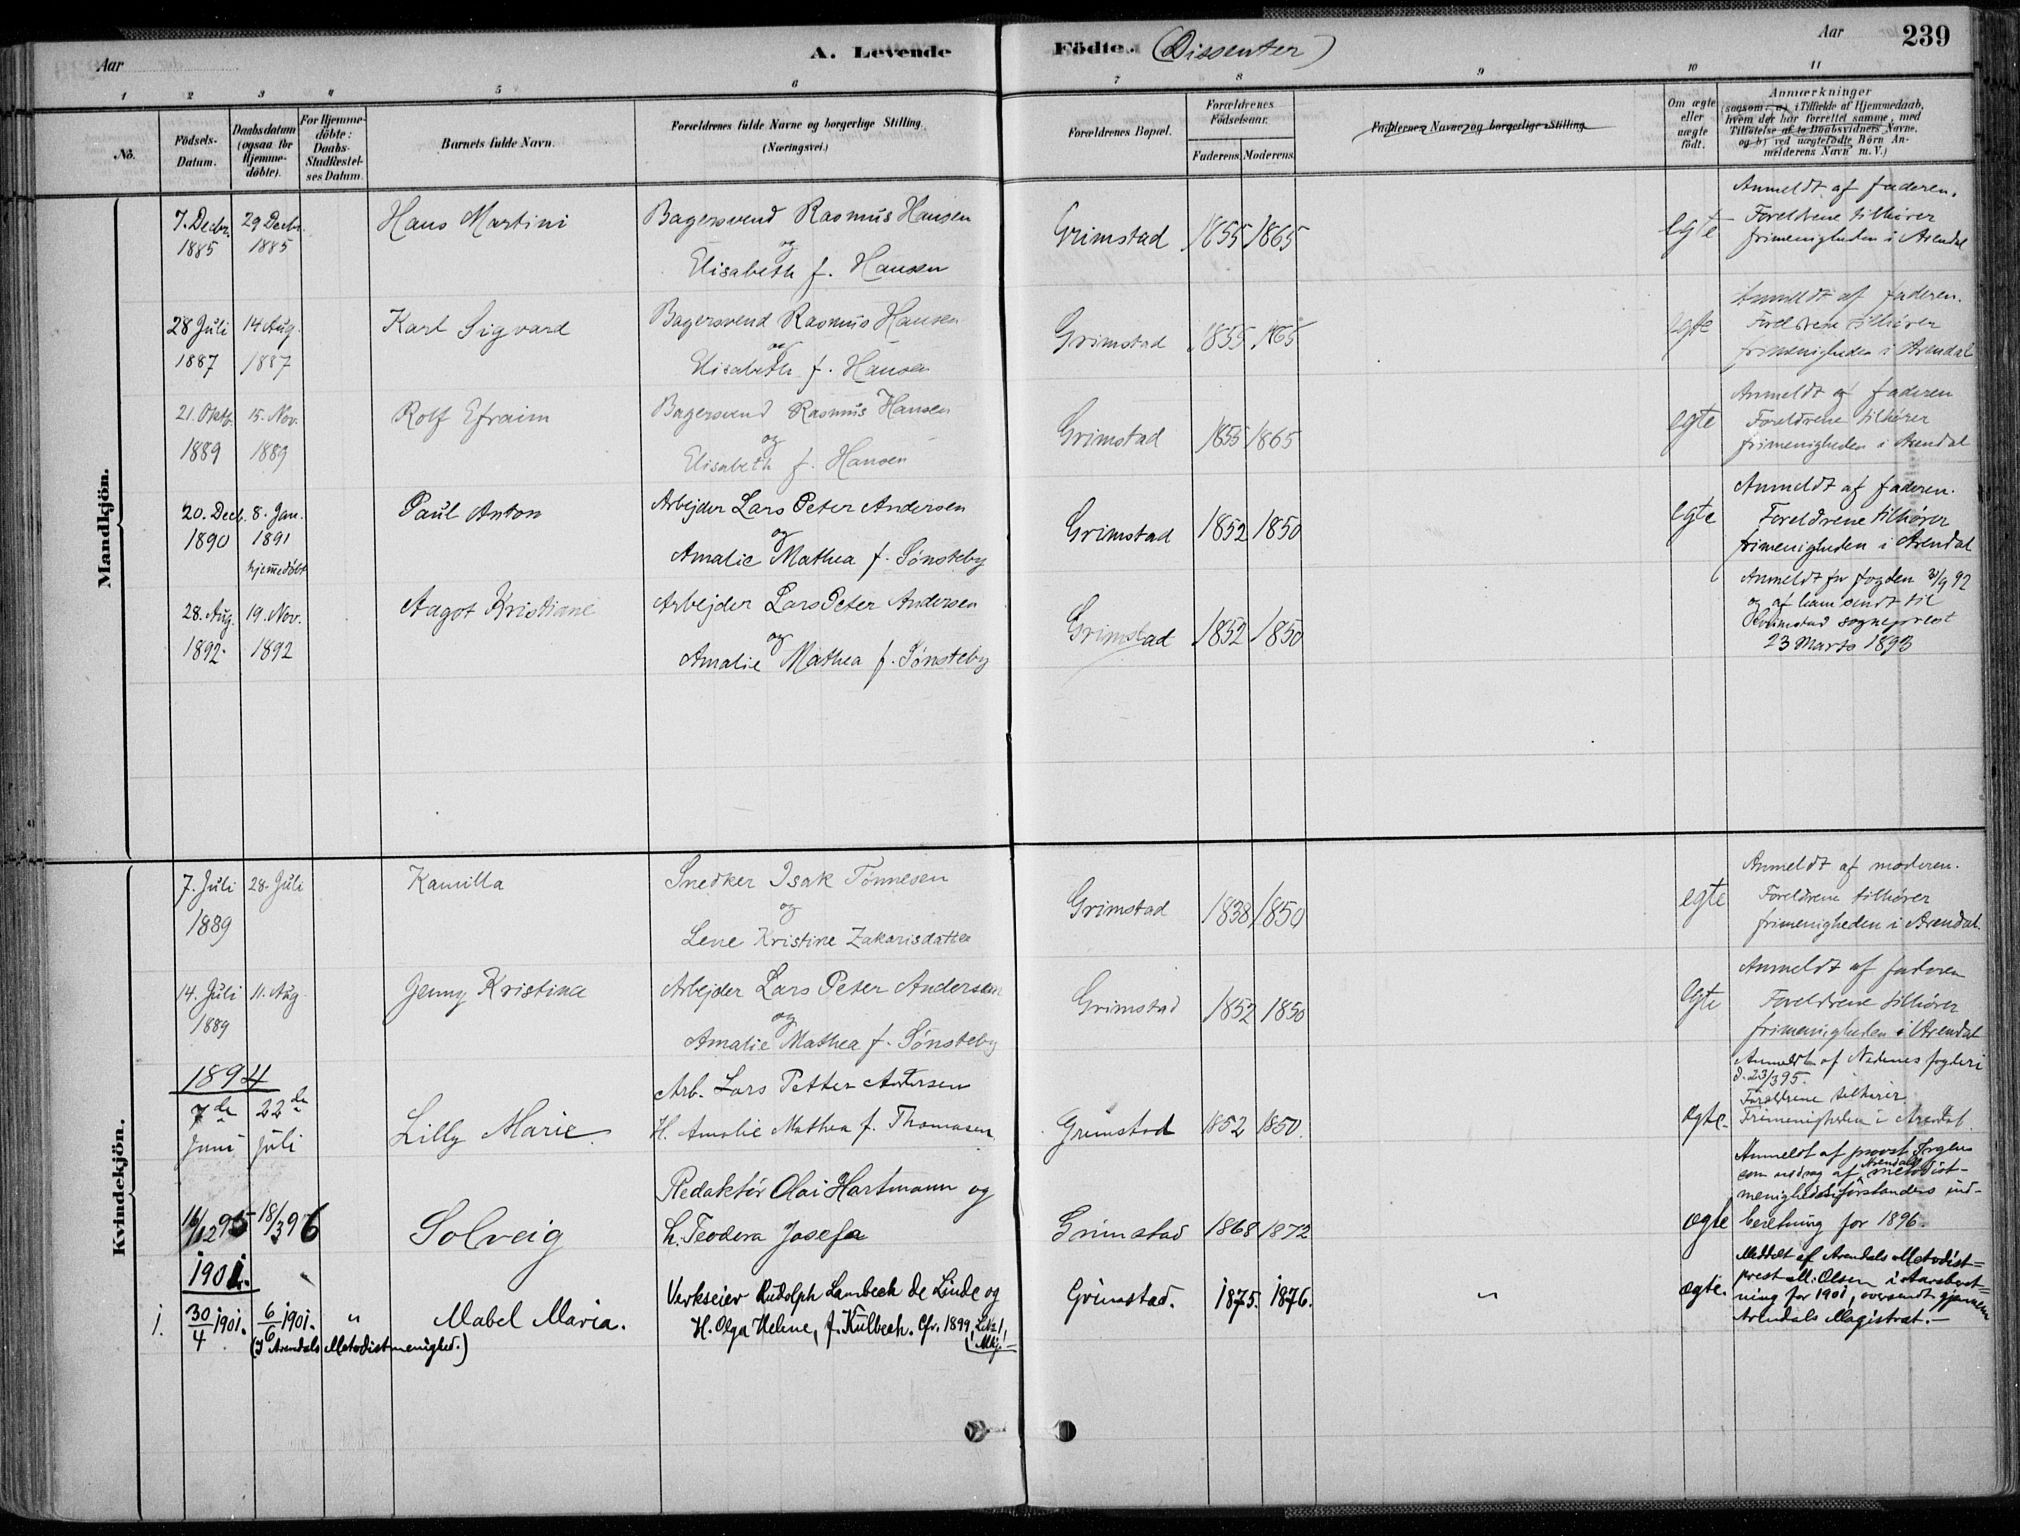 Aar
A. Levende
Födte. (Dissenter)
Aar
239
1 2 3 4 5 6 7 8 9 10 11
No.
Födsels-Datum.
Daabsdatum (ogsaa for Hjemmedöbte).
For Hjemmedöbte: Daabs-Stadfæstelses Datum.
Barnets fulde Navn.
Forældrenes fulde Navne og borgerlige Stilling (Næringsvei.)
Forældrenes Bopæl.
Forældrenes Födselsaar.
Faderens. Moderens.
Faddernes Navne og borgerlige Stilling
Om ægte eller uægte födt.
Anmærkninger
(saasom: a) i Tilfælde af Hjemmedaab,
hvem der har forrettet samme, med
Tilföielse af to Daabsvidners Navne,
og b) ved uægtefödte Börn Anmelderens Navn m. V.)
Mandkjön.
7. Decbr. 1885
29 Decbr. 1885
Hans Martini
Bagersvend Rasmus Hansen
og
Elisabeth f. Hansen
Grimstad
1855
1865
egte
Anmeldt af faderen.
Foreldrene tilhører
frimenigheden i Arendal
28 Juli 1887
14 Aug. 1887
Karl Sigvard
Bagersvend Rasmus Hansen
og
Elisabeth f. Hansen
Grimstad
1855
1865
egte
Anmeldt af faderen.
Foreldrene tilhører
frimenigheden i Arendal
21. Oktb. 1889
15. Nov. 1889
Rolf Efraim
Bagersvend Rasmus Hansen
og
Elisabeth f. Hansen
Grimstad
1855
1865
egte
Anmeldt af faderen
Foreldrene tilhører
frimenigheden i Arendal
20. Decb. 1890
8. Jan. 1891
hjemmedöbt
Paul Anton
Arbejder Lars Peter Andersen
og
Amalie Mathea f. Sønsteby
Grimstad
1852
1850
egte
Anmeldt af faderen.
Foreldrene tilhører
frimenigheden i Arendal
28. Aug. 1892.
19. Nov. 1892
Aagot Kristiane
Arbejder Lars Peter Andersen
og
Amalie Mathea f. Sønsteby
Grimstad
1852
1850
Anmeldt for fogden 3/9 92
og af ham sendt til
Grimstad sogneprest
23 Marts 1893
Kvindekjön.
7. Juli 1889
28. Juli
Kamilla
Snedker Isak Tønnesen
og
Lene Kristine Zakarisdatter
Grimstad
1838
1850
egte
Anmeldt af moderen.
Foreldrene tilhører
frimenigheden i Arendal.
14. Juli 1889
11. Aug.
Jenny Kristina
Arbejder Lars Peter Andersen
og
Amalie Mathea f. Sønsteby
Grimstad
1852
1850
egte
Anmeldt af faderen
Foreldrene tilhører
frimenigheden i Arendal
1894
7de Juni
22de Juli
Lilly Marie.
Arb. Lars Petter Andersen
H. Amalie Mathea f. Thomasen
Grimstad
1852
1850.
ægte.
Anmeldt af Nedenes fogderi
d. 23/3 95.
Forældrene tilhører
Frimenigheden i Arendal.
16/12 95
18/3 96
Solveig
Redaktör Olai Hartmann og
h. Teodora Josefa
Grimstad
1868
1872
ægte
Anmeldt af provst
som uddrag af Arendals metodist-
menigheds forstanders ind-
beretning for 1896.
1901.
1. 30/4 1901.
6/6 1901.
"
Mabel Maria.
(I Arendals Metodistmenighed.)
Verkseier Rudolph Lambech de Linde og
H. Olga Helene, f. Külbech. Cfr. 1899
Grimstad.
1875.
1876.
"
ægte.
Meddelt af Arendals Metodist=
prest M. Olsen i Aarsberet=
ning for 1901, oversendt gjennem
Arendals Magistrat.—